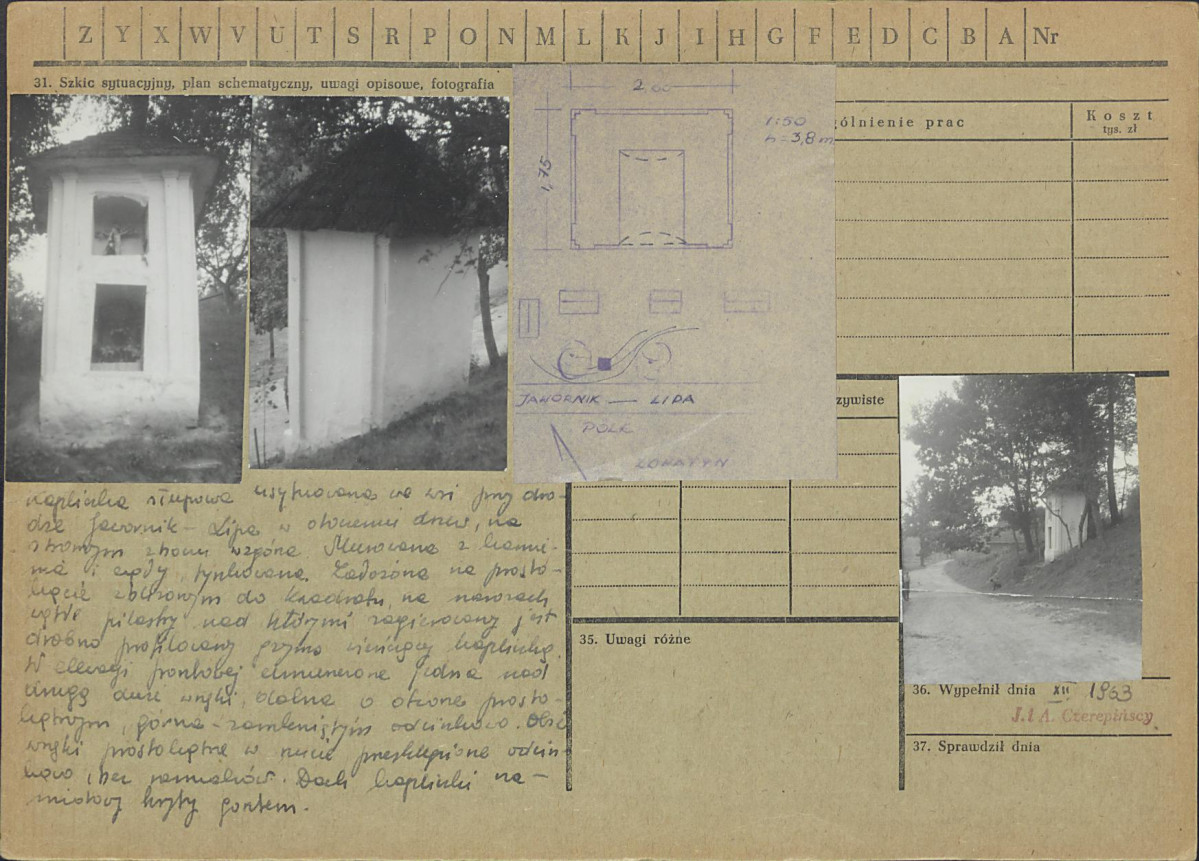 Z Y X W V U T S R P O N M L K J I H G F E D C B A Nr
31. Szkic sytuacyjny, plan schematyczny, uwagi opisowe, fotografia
2,00
1:50
h = 3,8 m
1,75
JAWORNIK — LIPA
POLE
ólnienie prac
Koszt
tys. zł
zywiste
kapliczka słupowa usytuowana we wsi przy dro-
dze Jawornik – Lipa w otoczeniu drzew, na
stromym zboczu wzgórza. Murowana z kamie-
nia i cegły, tynkowana. Założona na prosto-
kącie zbliżonym do kwadratu, na narożach
pilastry nad którymi zagierowany jest
drobno profilowany gzyms wieńczący kapliczkę.
W elewacji frontowej umieszczone jedna nad
drugą duże wnęki, dolna o otworze prosto-
kątnym, górna – zamkniętym odcinkowo. Obie
wnęki prostokątne w rzucie przesklepione odcin-
kowo. Dach kapliczki na-
miotowy kryty gontem.
35. Uwagi różne
36. Wypełnił dnia XII 1963
J. i A. Czerepińscy
37. Sprawdził dnia